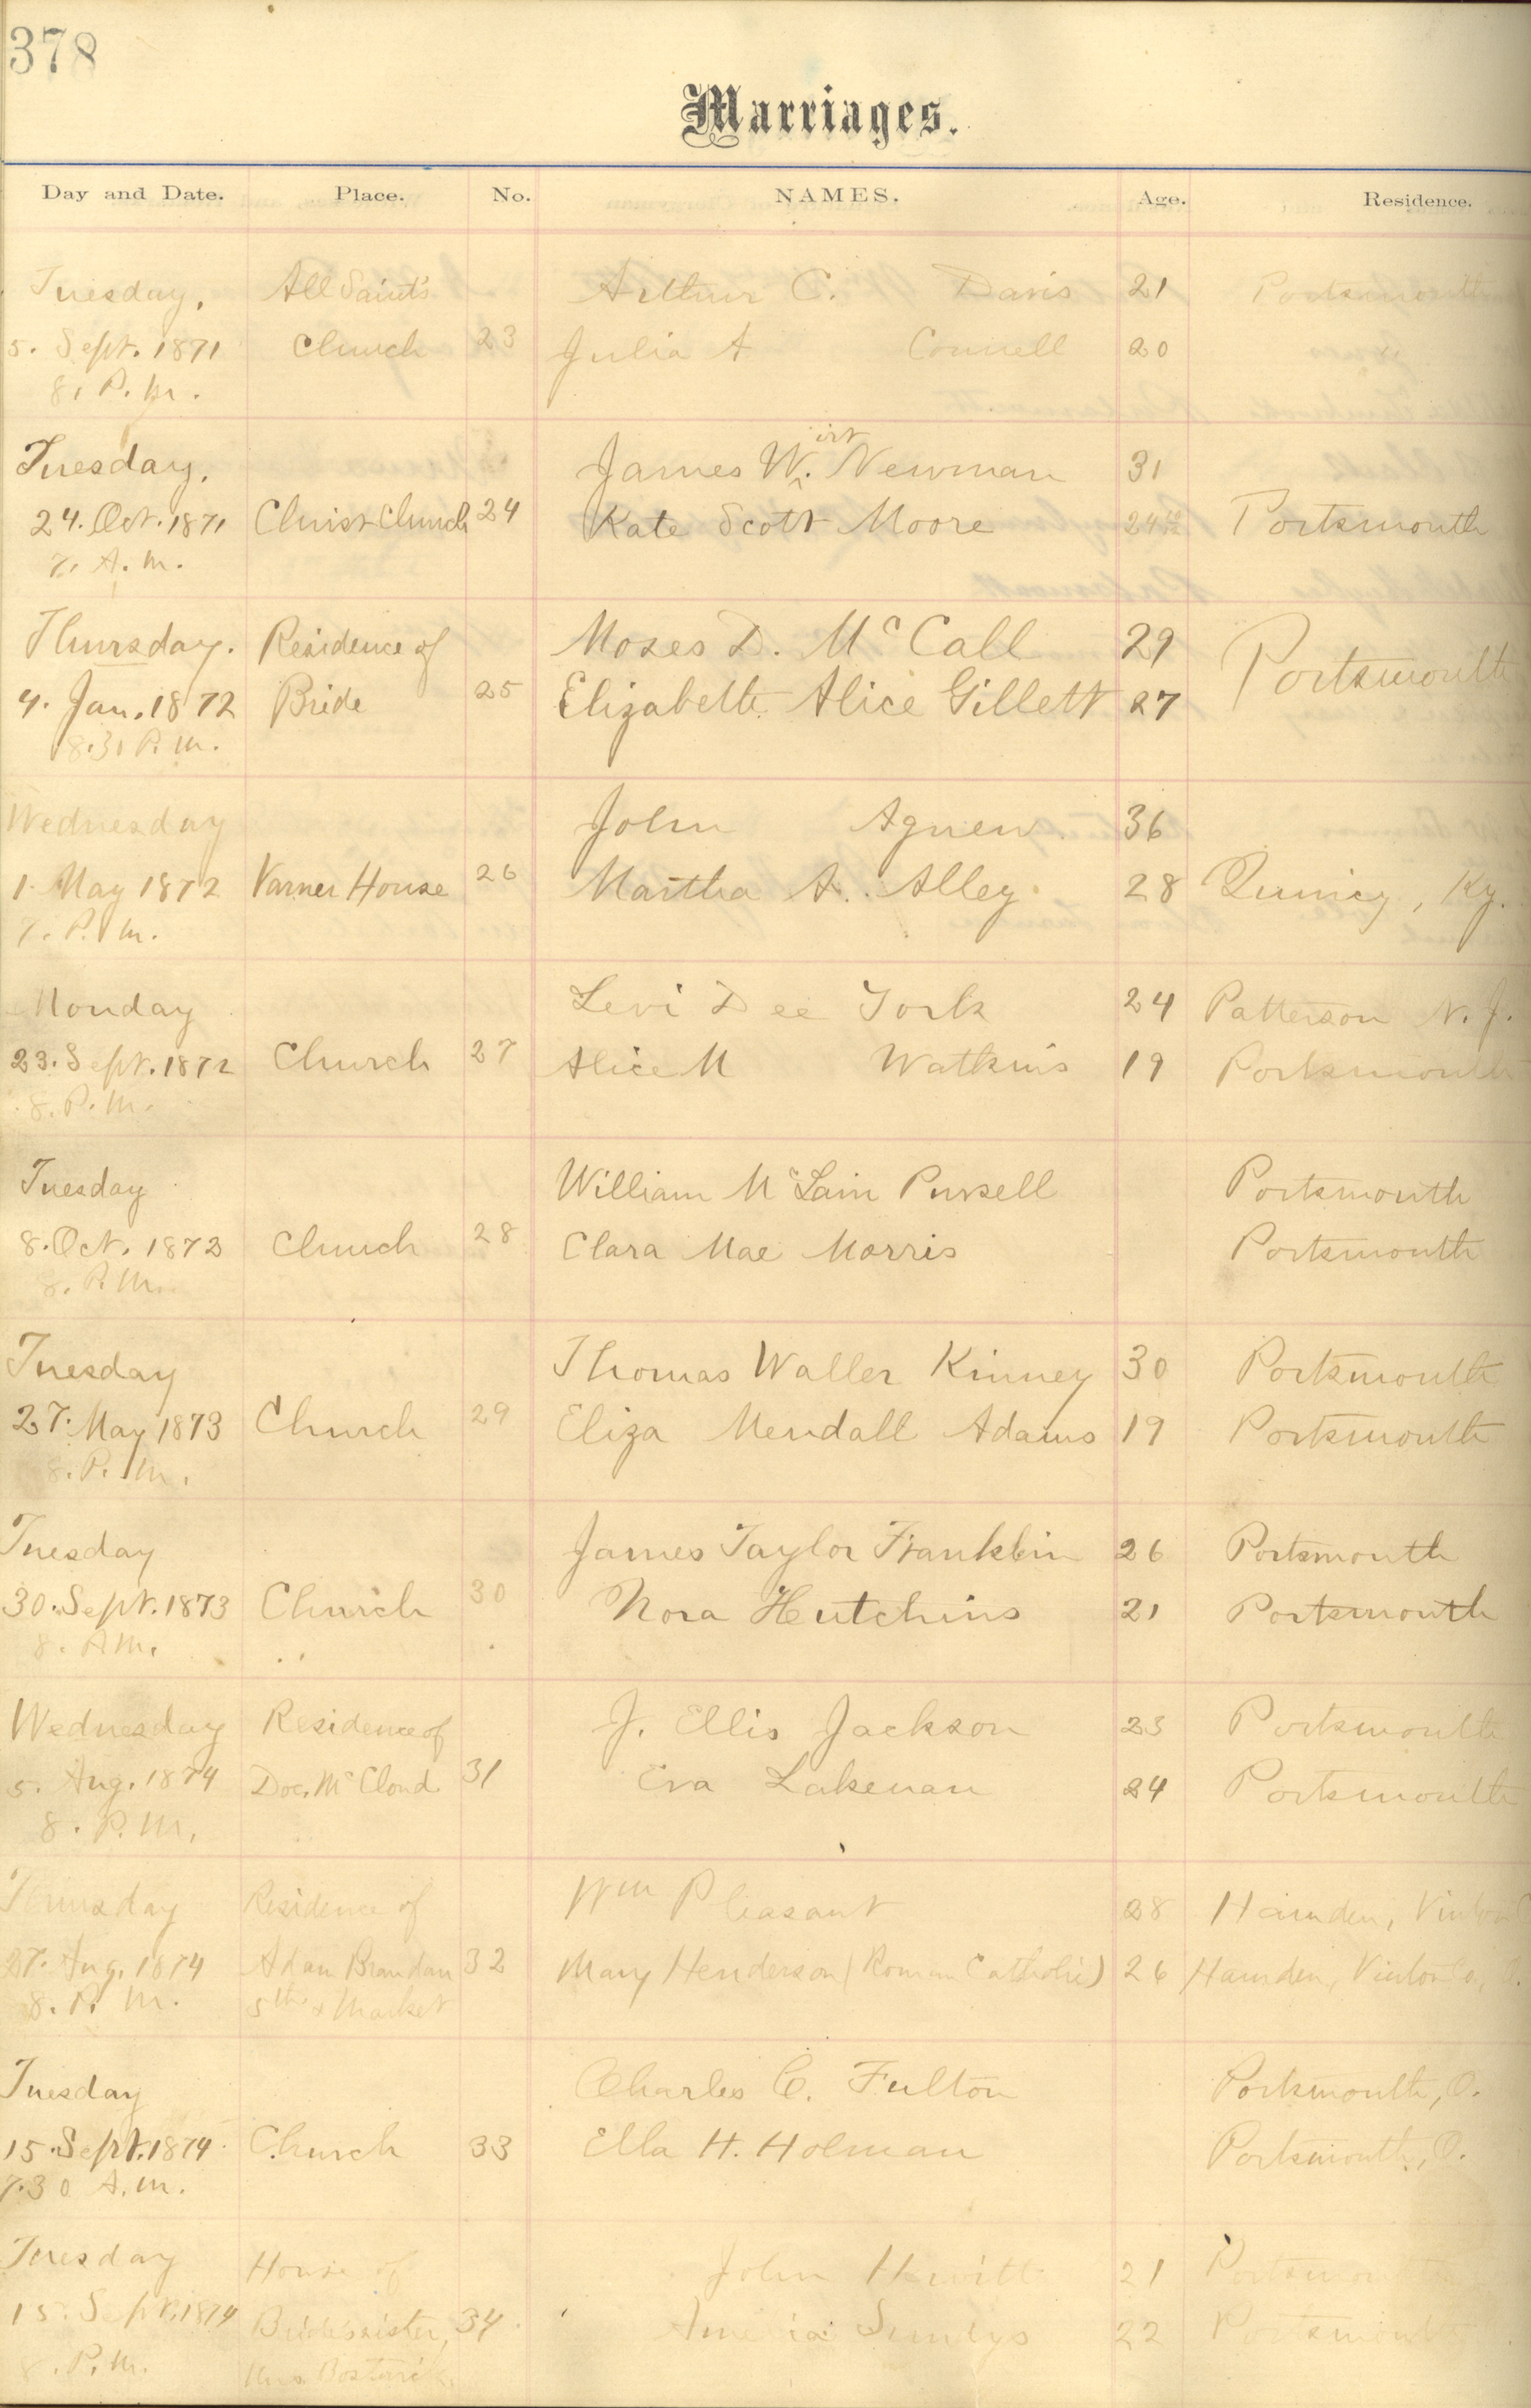 378
Marriages.
Day and Date. Place. No. NAMES. Age. Residence.
Tuesday, All Saint's Arthur C. Davis 21 Portsmouth
5. Sept. 1871 Church 23 Julia A Connell 20 "
8, P. M.
Tuesday, James W.irt Newman 31
24. Oct. 1871 Christ Church 24 Kate Scott Moore 24 Portsmouth
7, A. M.
Thursday. Residence of Moses D. McCall 29 Portsmouth
4. Jan. 1872 Bride 25 Elizabeth Alice Gillett 27
8.30 P. M.
Wednesday John Agnew 36
1. May 1872 Varner House 26 Martha A. Alley 28 Quincy, Ky.
7. P. M.
Monday Levi Dee York 24 Patterson N. J.
23. Sept. 1872 Church 27 Alice M Watkins 19 Portsmouth
8. P. M.
Tuesday William McLain Pursell Portsmouth
8. Oct. 1872 Church 28 Clara Mae Morris Portsmouth
8. P. M.
Tuesday Thomas Waller Kinney 30 Portsmouth
27. May 1873 Church 29 Eliza Mendall Adams 19 Portsmouth
8. P. M.
Tuesday James Taylor Franklin 26 Portsmouth
30. Sept. 1873 Church 30 Nora Hutchins 21 Portsmouth
8. P.M.
Wednesday Residence of J. Ellis Jackson 23 Portsmouth
5. Aug. 1874 Doc. McCloud 31 Eva Lakeman 24 Portsmouth
8. P. M.
Thursday Residence of Wm Pleasant 28 Hamden, Vinton
27. Aug. 1874 Adam Brandan 32 Mary Henderson (Roman Catholic) 26 Hamden, Vinton Co, O.
8. P. M. 5th & Market
Tuesday Charles C. Fulton Portsmouth, O.
15. Sept. 1874 Church 33 Ella H. Holman Portsmouth, O.
7.30 A. M.
Tuesday House of John Hewitt 21 Portsmouth
15. Sept. 1874 Bride's sister, 34 22 Portsmouth
8. P. M. Mrs. Bostwick